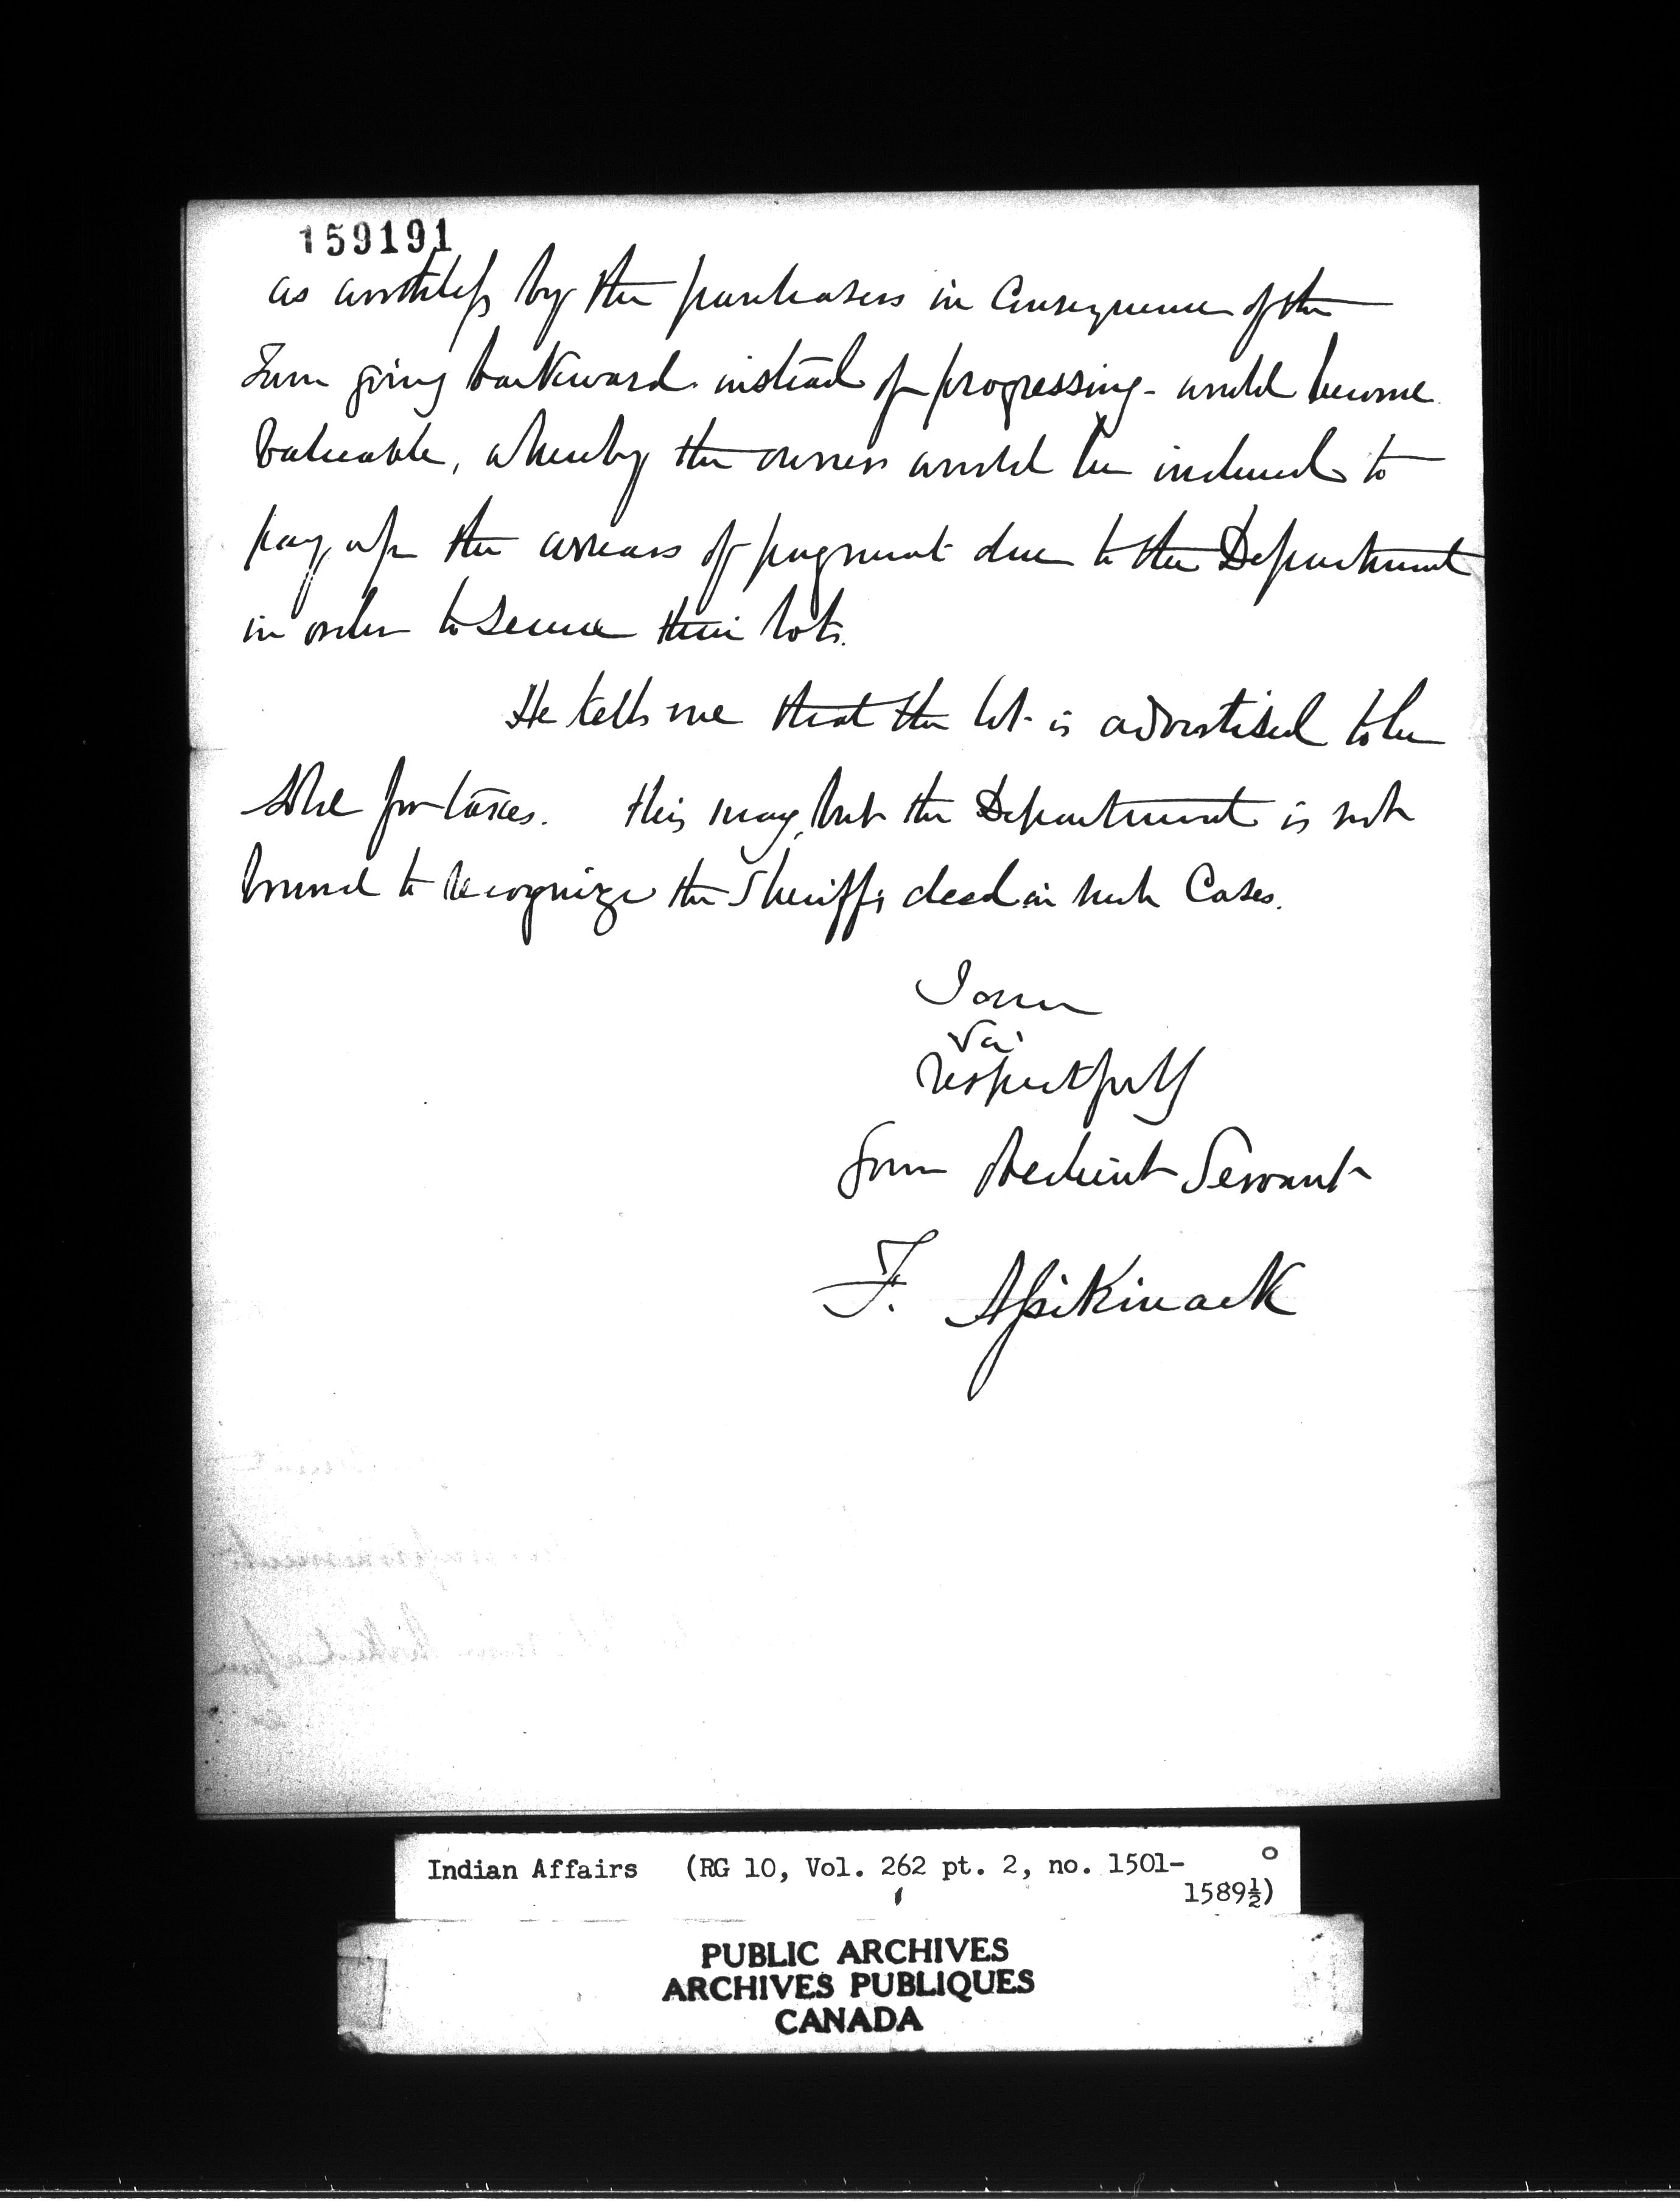 159191
as worthless by the purchasers in Consequence of the
Town going backward instead of progressing - would become
valuable, whereby the owners would be induced to
pay up the arrears of payment due to the Department
in order to secure their lots.
He tells me that the lot is advertised to be
sold for taxes. this may, but the Department is not
bound to recognize the Sheriff's deed in such Cases.
I am
Sir
respectfully
Your Obedient Servant
F. Assikinack
Indian Affairs (RG 10, Vol. 262 pt. 2, no. 1501-
1589½)
PUBLIC ARCHIVES
ARCHIVES PUBLIQUES
CANADA